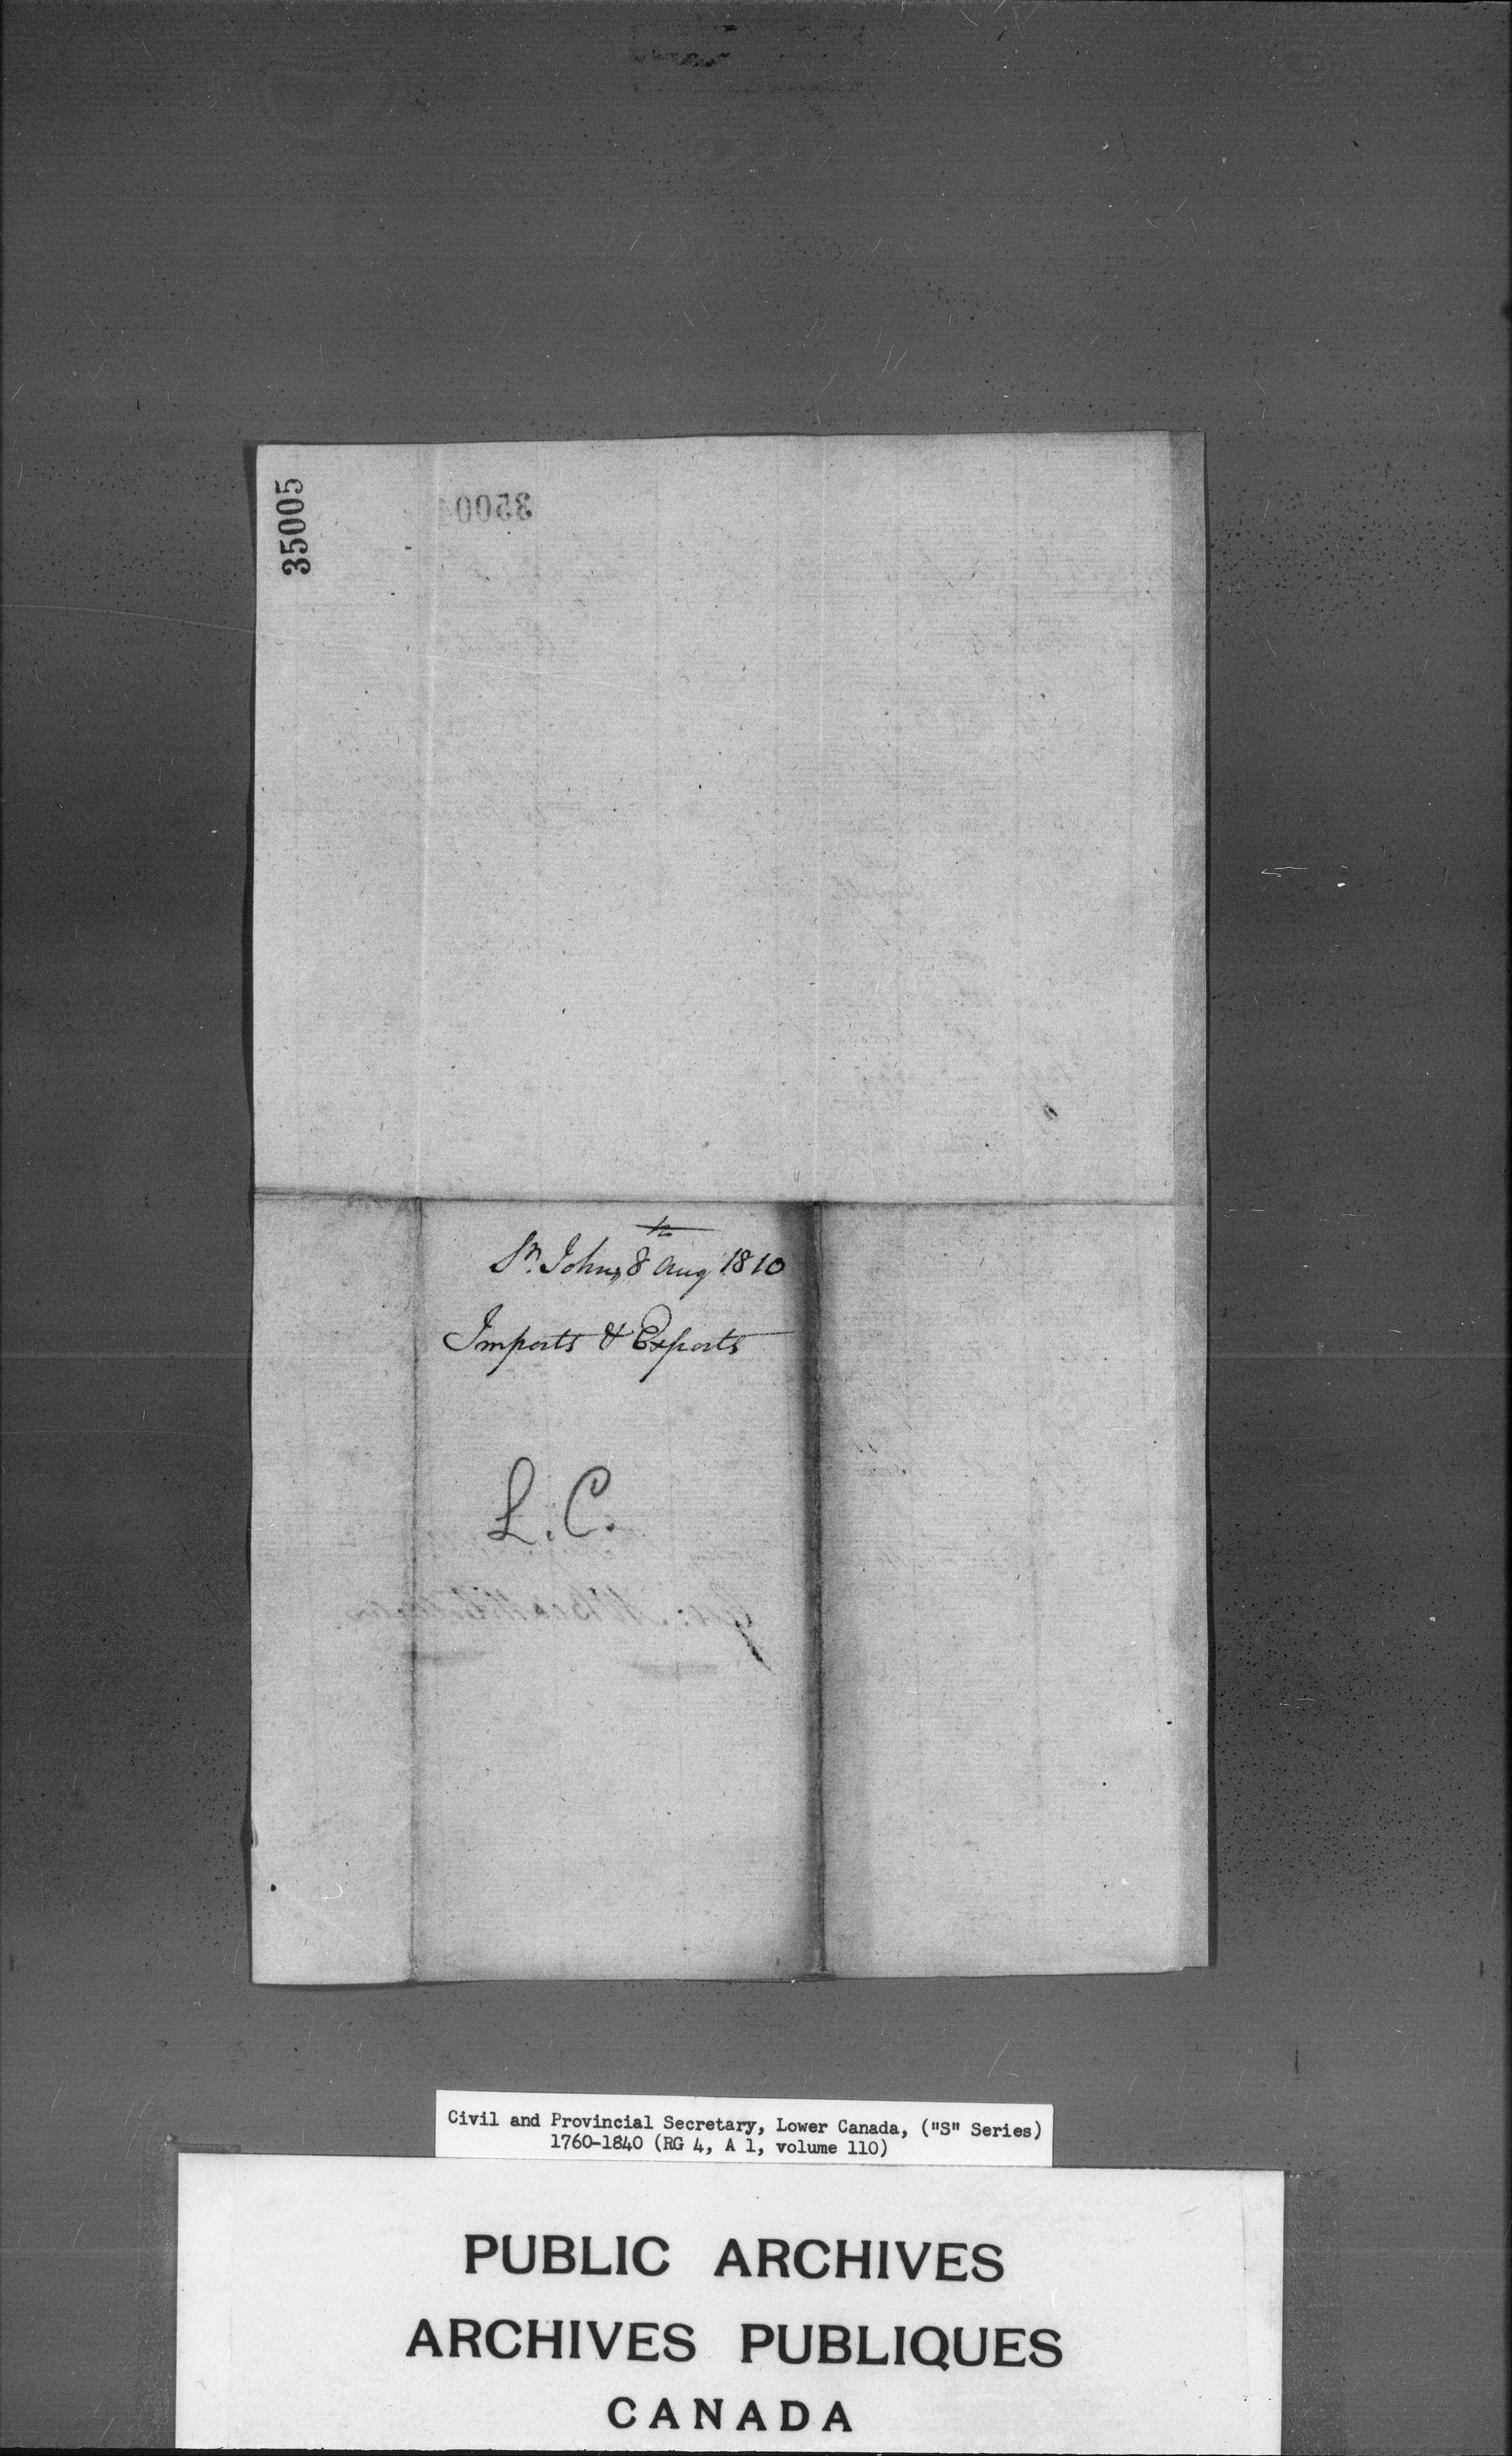 35005
3500
St. Johns 8 Aug 1810
Imports & Exports
L.C.
Civil and Provincial Secretary, Lower Canada, ("S" Series)
1760-1840 (RG 4, A 1, volume 110)
PUBLIC ARCHIVES
ARCHIVES PUBLIQUES
CANADA